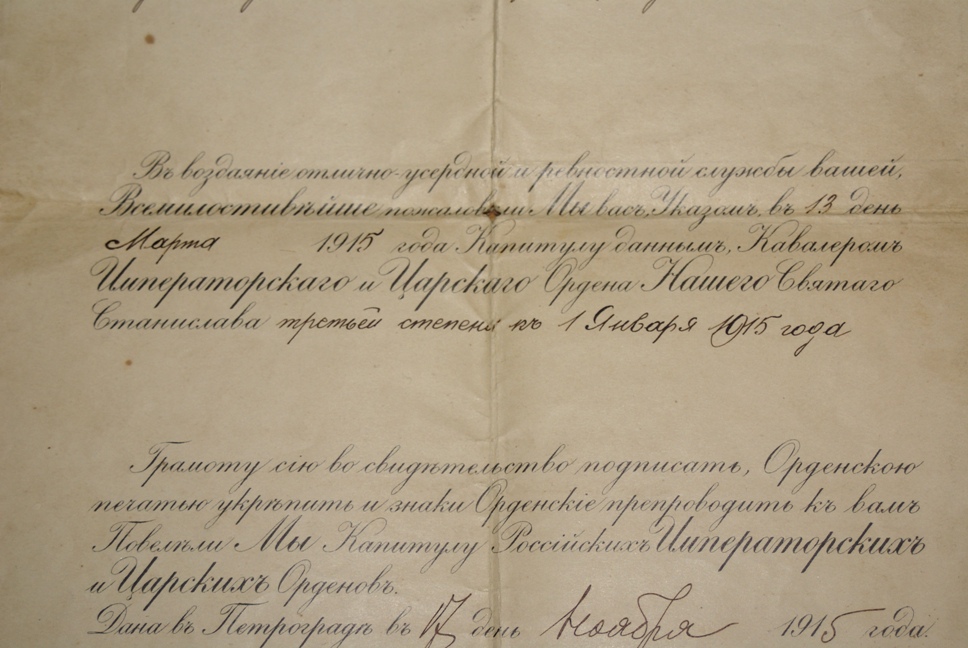 Въ воздаяніе отлично-усердной и ревностной службы вашей,
Всемилостивѣйше пожаловали Мы васъ, Указомъ, въ 13 день
Марта 1915 года Капитулу даннымъ, Кавалеромъ
Императорскаго и Царскаго Ордена Нашего Святаго
Станислава третьей степени къ 1 Января 1915 года
Грамоту сію во свидѣтельство подписать, Орденскою
печатью укрѣпить и знаки Орденскіе препроводить къ вамъ
Повелѣли Мы Капитулу Россійскихъ Императорскихъ
и Царскихъ Орденовъ.
Дана въ Петроградѣ въ 17 день Ноября 1915 года.